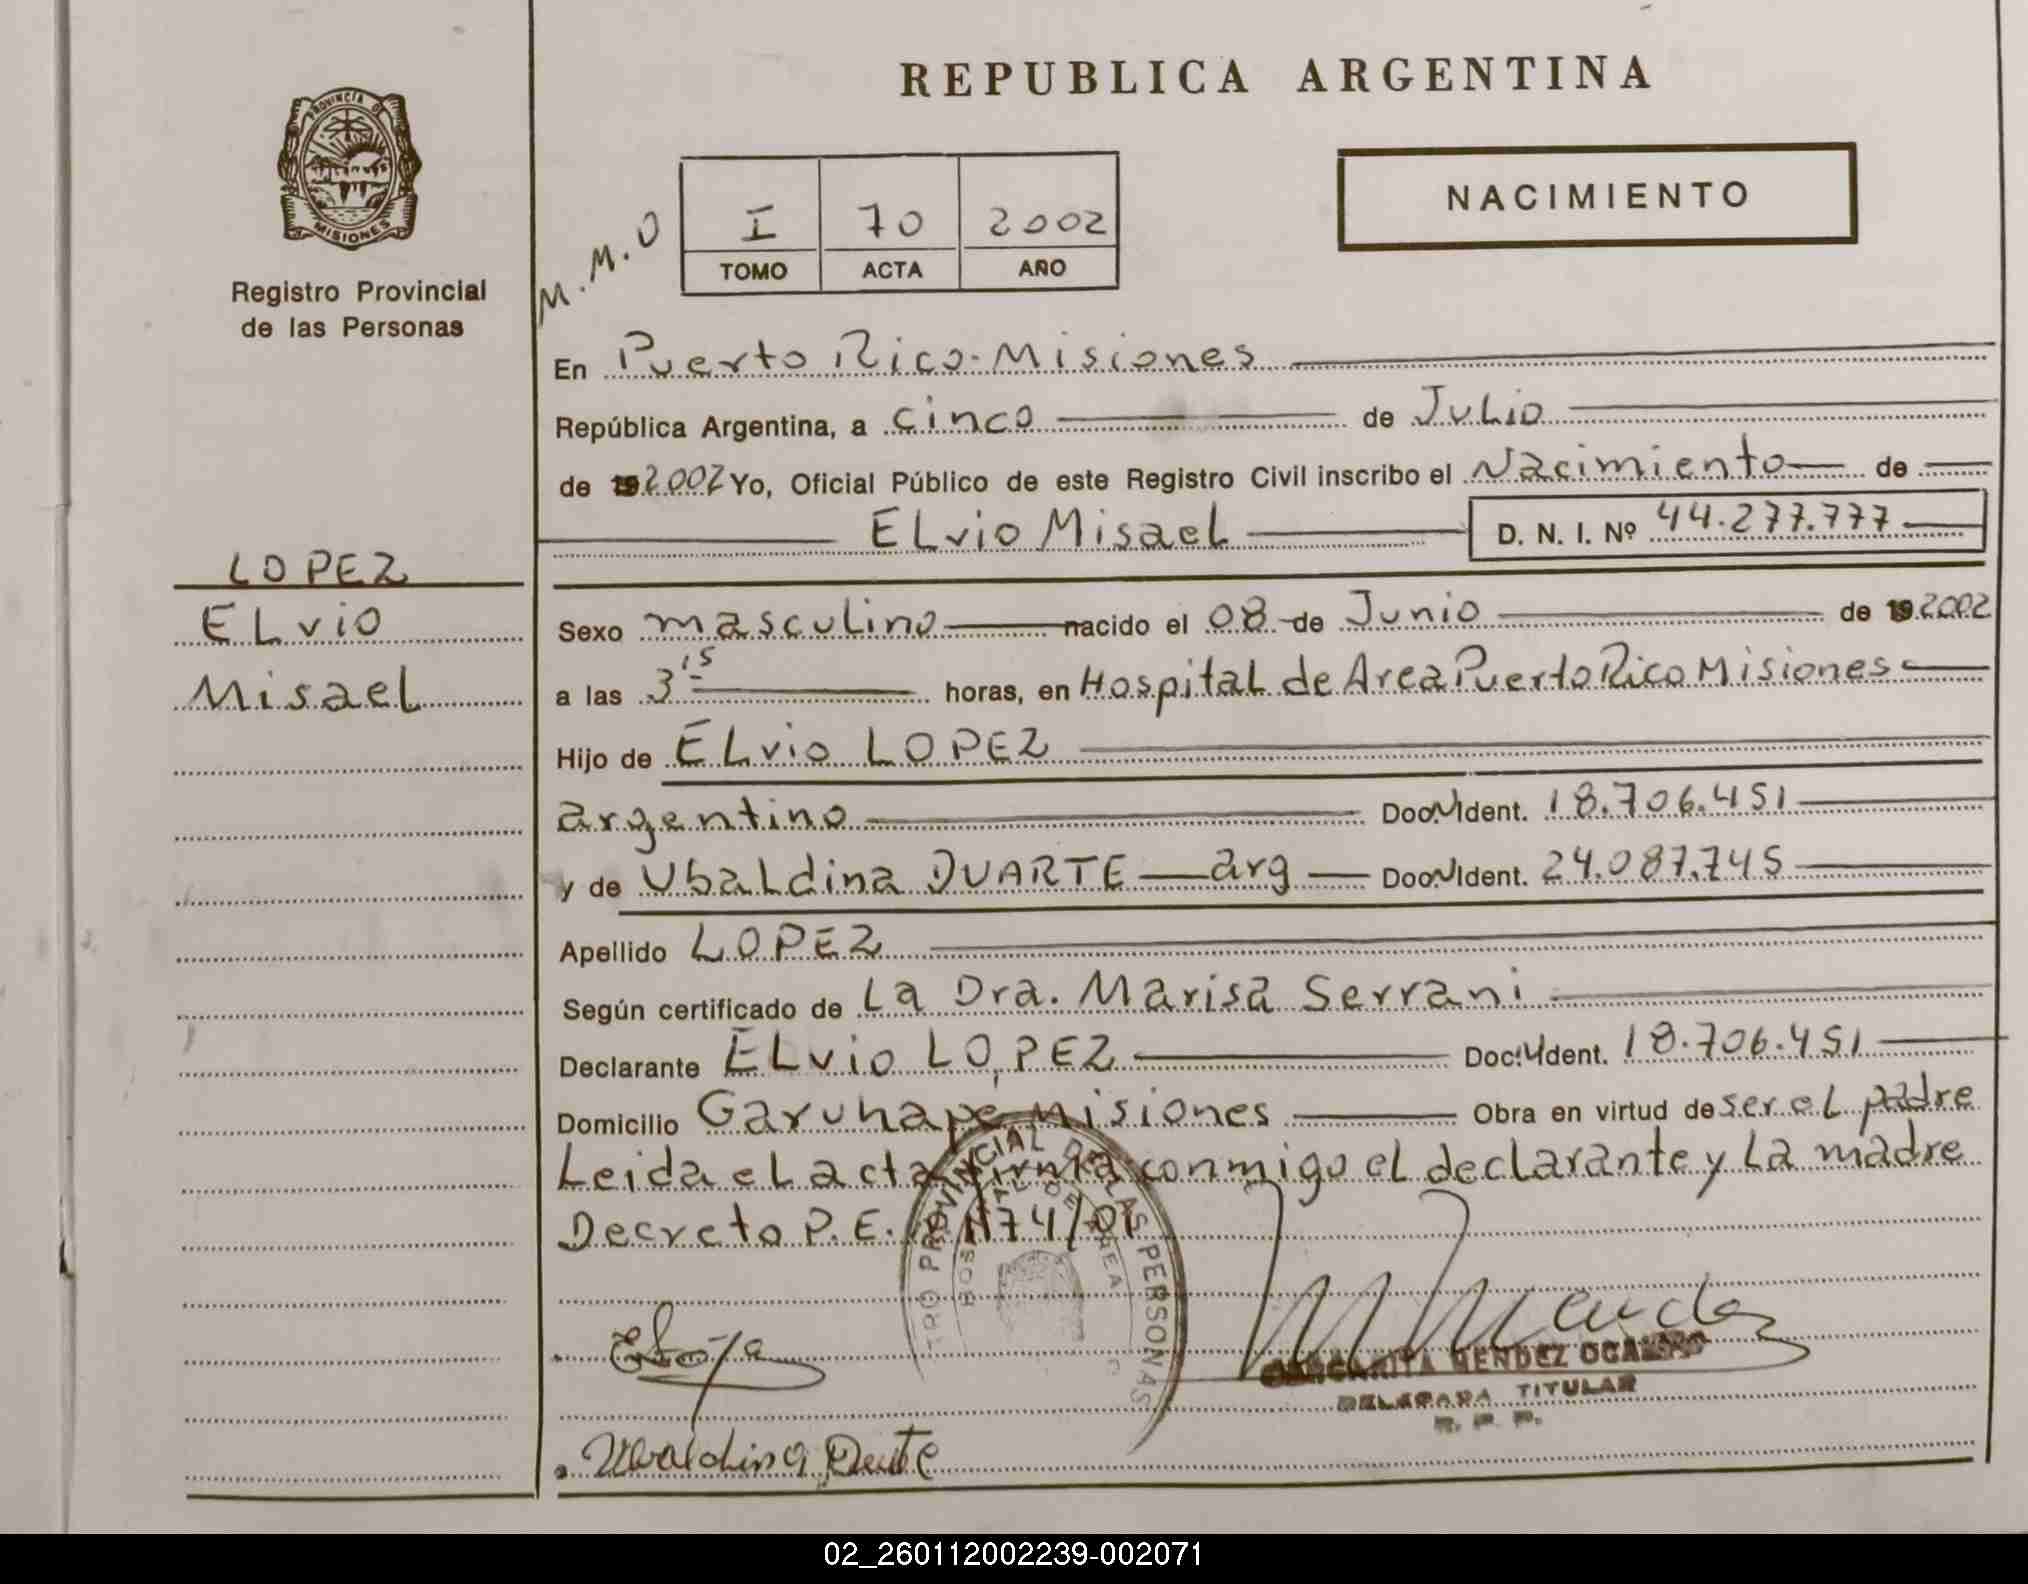 REPUBLICA ARGENTINA
PROVINCIA DE
MISIONES
Registro Provincial
de las Personas
NACIMIENTO
M.M.O
I 70 2002
TOMO ACTA AÑO
En Puerto Rico-Misiones
República Argentina, a cinco de Julio
de 192002 Yo, Oficial Público de este Registro Civil inscribo el Nacimiento de
ELvio MisaeL D. N. I. Nº 44.277.777
LOPEZ
ELvio
MisaeL
Sexo masculino nacido el 08 de Junio de 192002
a las 3 15 horas, en HospitaL de Area Puerto Rico Misiones
Hijo de ELvio LOPEZ
argentino Doc. Ident. 18.706.451
y de UbaLdina DUARTE arg Doc. Ident. 24.087.745
Apellido LOPEZ
Según certificado de La Dra. Marisa Serrani
Declarante ELvio LOPEZ Doc. Ident. 18.706.451
Domicilio Garuhape Misiones Obra en virtud de ser eL padre
Leida eL acta firma conmigo eL declarante y La madre
Decreto P.E. 1174/01
PROVINCIAL DE LAS PERSONAS
MENDEZ
DELEGADA TITULAR
R. P. P.
Ubaldina Duarte
02_260112002239-002071